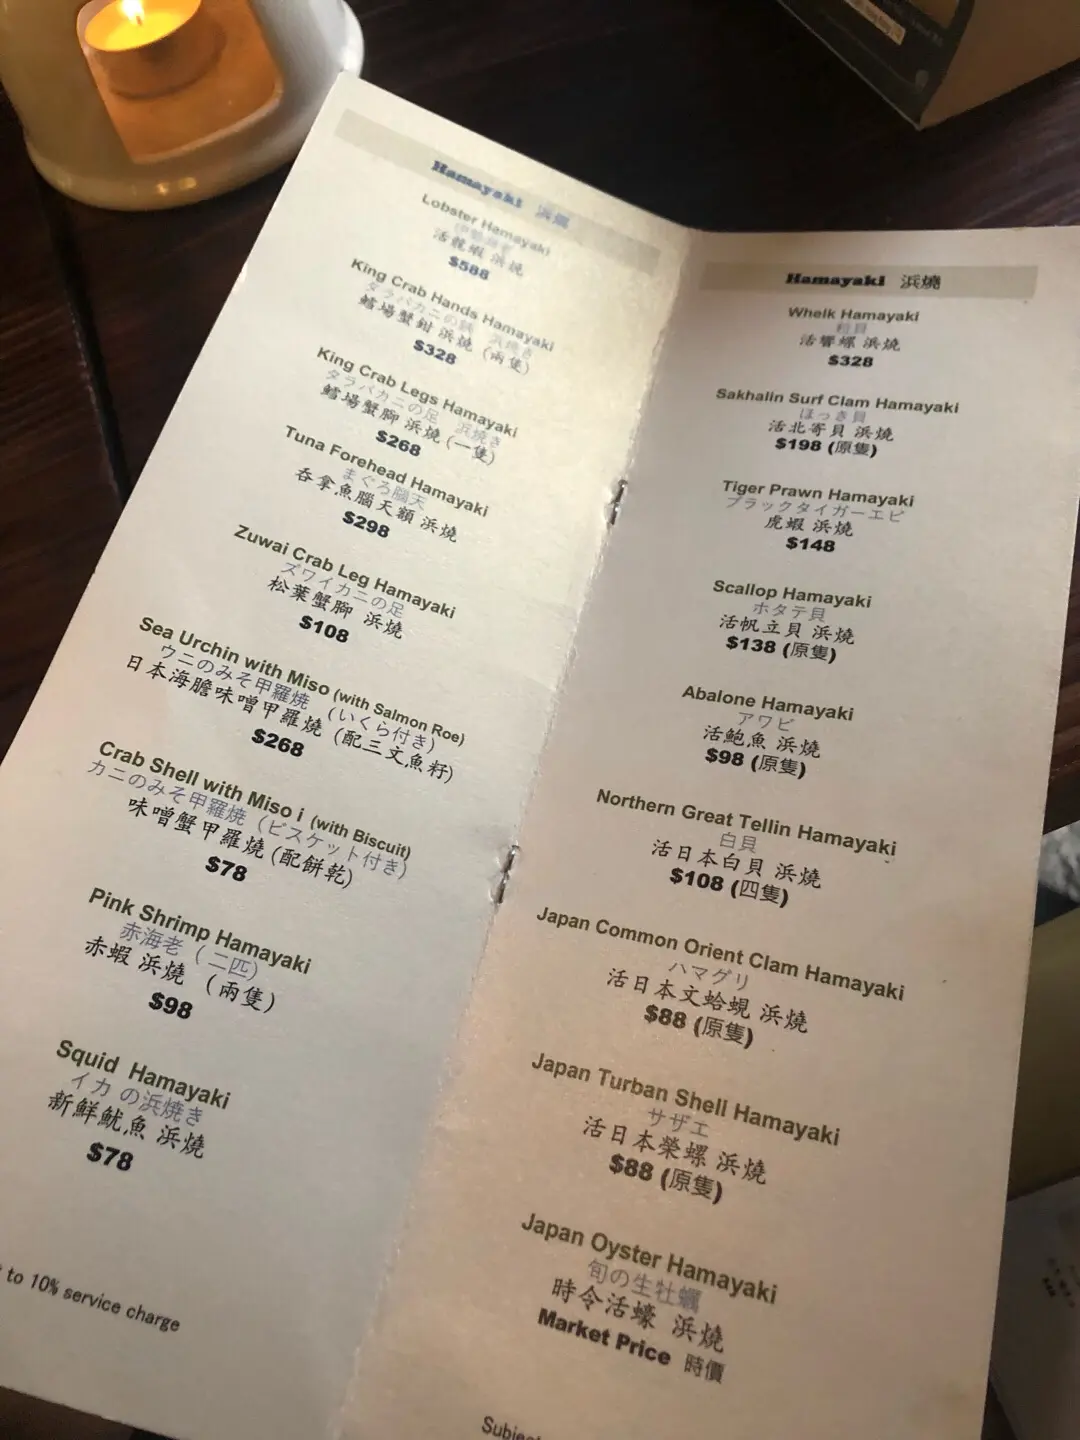 Hamayaki 浜燒
Lobster Hamayaki
活龍蝦 浜燒
$588
King Crab Hands Hamayaki
タラバカニの 浜焼き
鱈場蟹鉗 浜燒 (兩隻)
$328
King Crab Legs Hamayaki
タラバカニの足 浜焼き
鱈場蟹腳 浜燒 (一隻)
$268
Tuna Forehead Hamayaki
まぐろ脳天
吞拿魚腦天額 浜燒
$298
Zuwai Crab Leg Hamayaki
ズワイカニの足
松葉蟹腳 浜燒
$108
Sea Urchin with Miso (with Salmon Roe)
ウニのみそ甲羅焼 (いくら付き)
日本海膽味噌甲羅燒 (配三文魚籽)
$268
Crab Shell with Miso i (with Biscuit)
カニのみそ甲羅焼 (ビスケット付き)
味噌蟹甲羅燒 (配餅乾)
$78
Pink Shrimp Hamayaki
赤海老 (二匹)
赤蝦 浜燒 (兩隻)
$98
Squid Hamayaki
イカ の浜焼き
新鮮魷魚 浜燒
$78
to 10% service charge
Hamayaki 浜燒
Whelk Hamayaki
粒貝
活響螺 浜燒
$328
Sakhalin Surf Clam Hamayaki
ほっき貝
活北寄貝 浜燒
$198 (原隻)
Tiger Prawn Hamayaki
ブラックタイガーエビ
虎蝦 浜燒
$148
Scallop Hamayaki
ホタテ貝
活帆立貝 浜燒
$138 (原隻)
Abalone Hamayaki
アワビ
活鮑魚 浜燒
$98 (原隻)
Northern Great Tellin Hamayaki
白貝
活日本白貝 浜燒
$108 (四隻)
Japan Common Orient Clam Hamayaki
ハマグリ
活日本文蛤蜆 浜燒
$88 (原隻)
Japan Turban Shell Hamayaki
サザエ
活日本榮螺 浜燒
$88 (原隻)
Japan Oyster Hamayaki
旬の生牡蠣
時令活蠔 浜燒
Market Price 時價